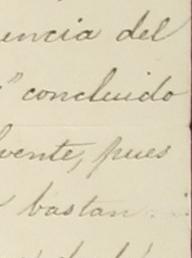 encia del
" concluido
vente, pues
bastan